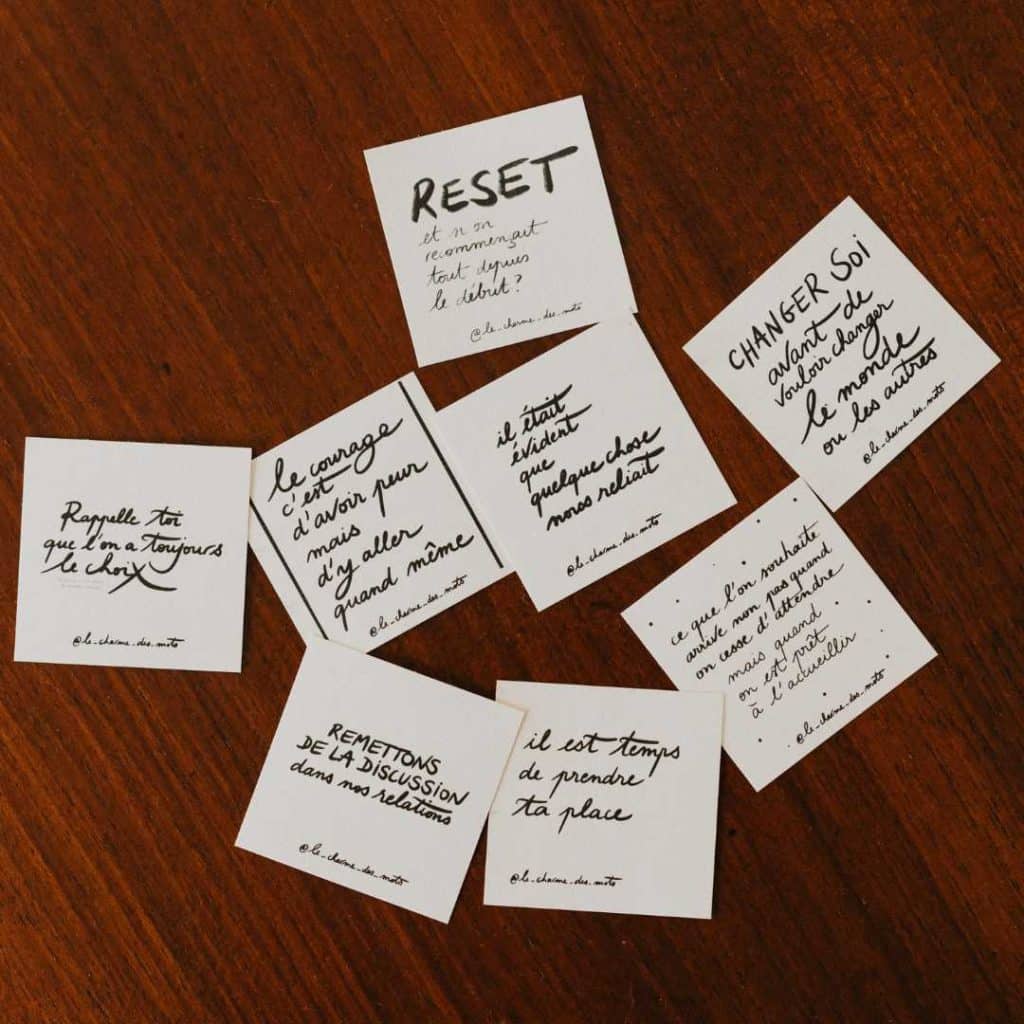 RESET
et si on
recommençait
tout depuis
le début?
@le_charme_des_mots
CHANGER SOI
avant de
vouloir changer
le monde
ou les autres
@le_charme_des_mots
il était
évident
que
quelque chose
nous reliait
@le_charme_des_mots
le courage
c'est
d'avoir peur
mais
d'y aller
quand même
@le_charme_des_mots
Rappelle toi
que l'on a toujours
le choix
@le_charme_des_mots
ce que l'on souhaite
arrive non pas quand
on cesse d'attendre
mais quand
on est prêt
à l'accueillir
@le_charme_des_mots
REMETTONS
DE LA DISCUSSION
dans nos relations
@le_charme_des_mots
il est temps
de prendre
ta place
@le_charme_des_mots